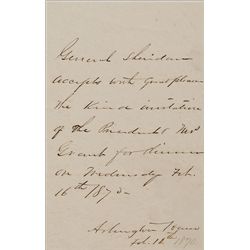 General Sheridan
accepts with great pleasure
the kind invitation
of the President & Mrs
Grant for dinner
on Wednesday Feb.
16th 1870-
Arlington House
Feb. 12th 1870.